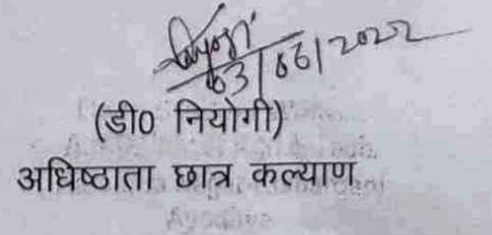 03/06/2022
(डी0 नियोगी)
अधिष्ठाता छात्र कल्याण